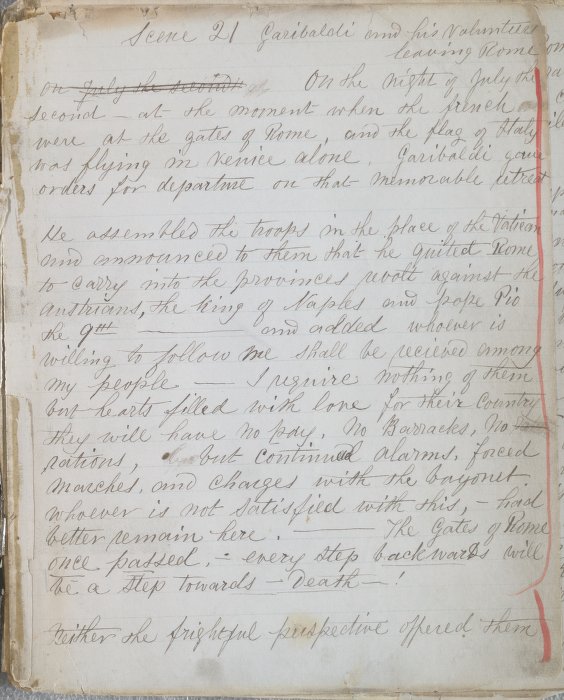 Scene 21 Garibaldi and his Volunteers
leaving Rome
on July the second On the night of July the
second — at the moment when the french
were at the gates of Rome, and the flag of Italy
was flying in Venice alone. Garibaldi gave
orders for departure on that memorable retreat
He assembled the troops in the place of the Vatican
and announced to them that he quited Rome
to carry into the provinces revolt against the
Austrians, the King of Naples and pope Pio
the 9th ——— and added whoever is
willing to follow me shall be recieved among
my people — I require nothing of them
but hearts filled with love for their Country
they will have no pay, No Barracks, No
rations, but continued alarms, forced
marches, and charges with the bayonet
whoever is not satisfied with this, — had
better remain here. ——— The Gates of Rome
once passed, - every step backwards will
be a step towards — Death — !
Neither the frightful perspective offered them